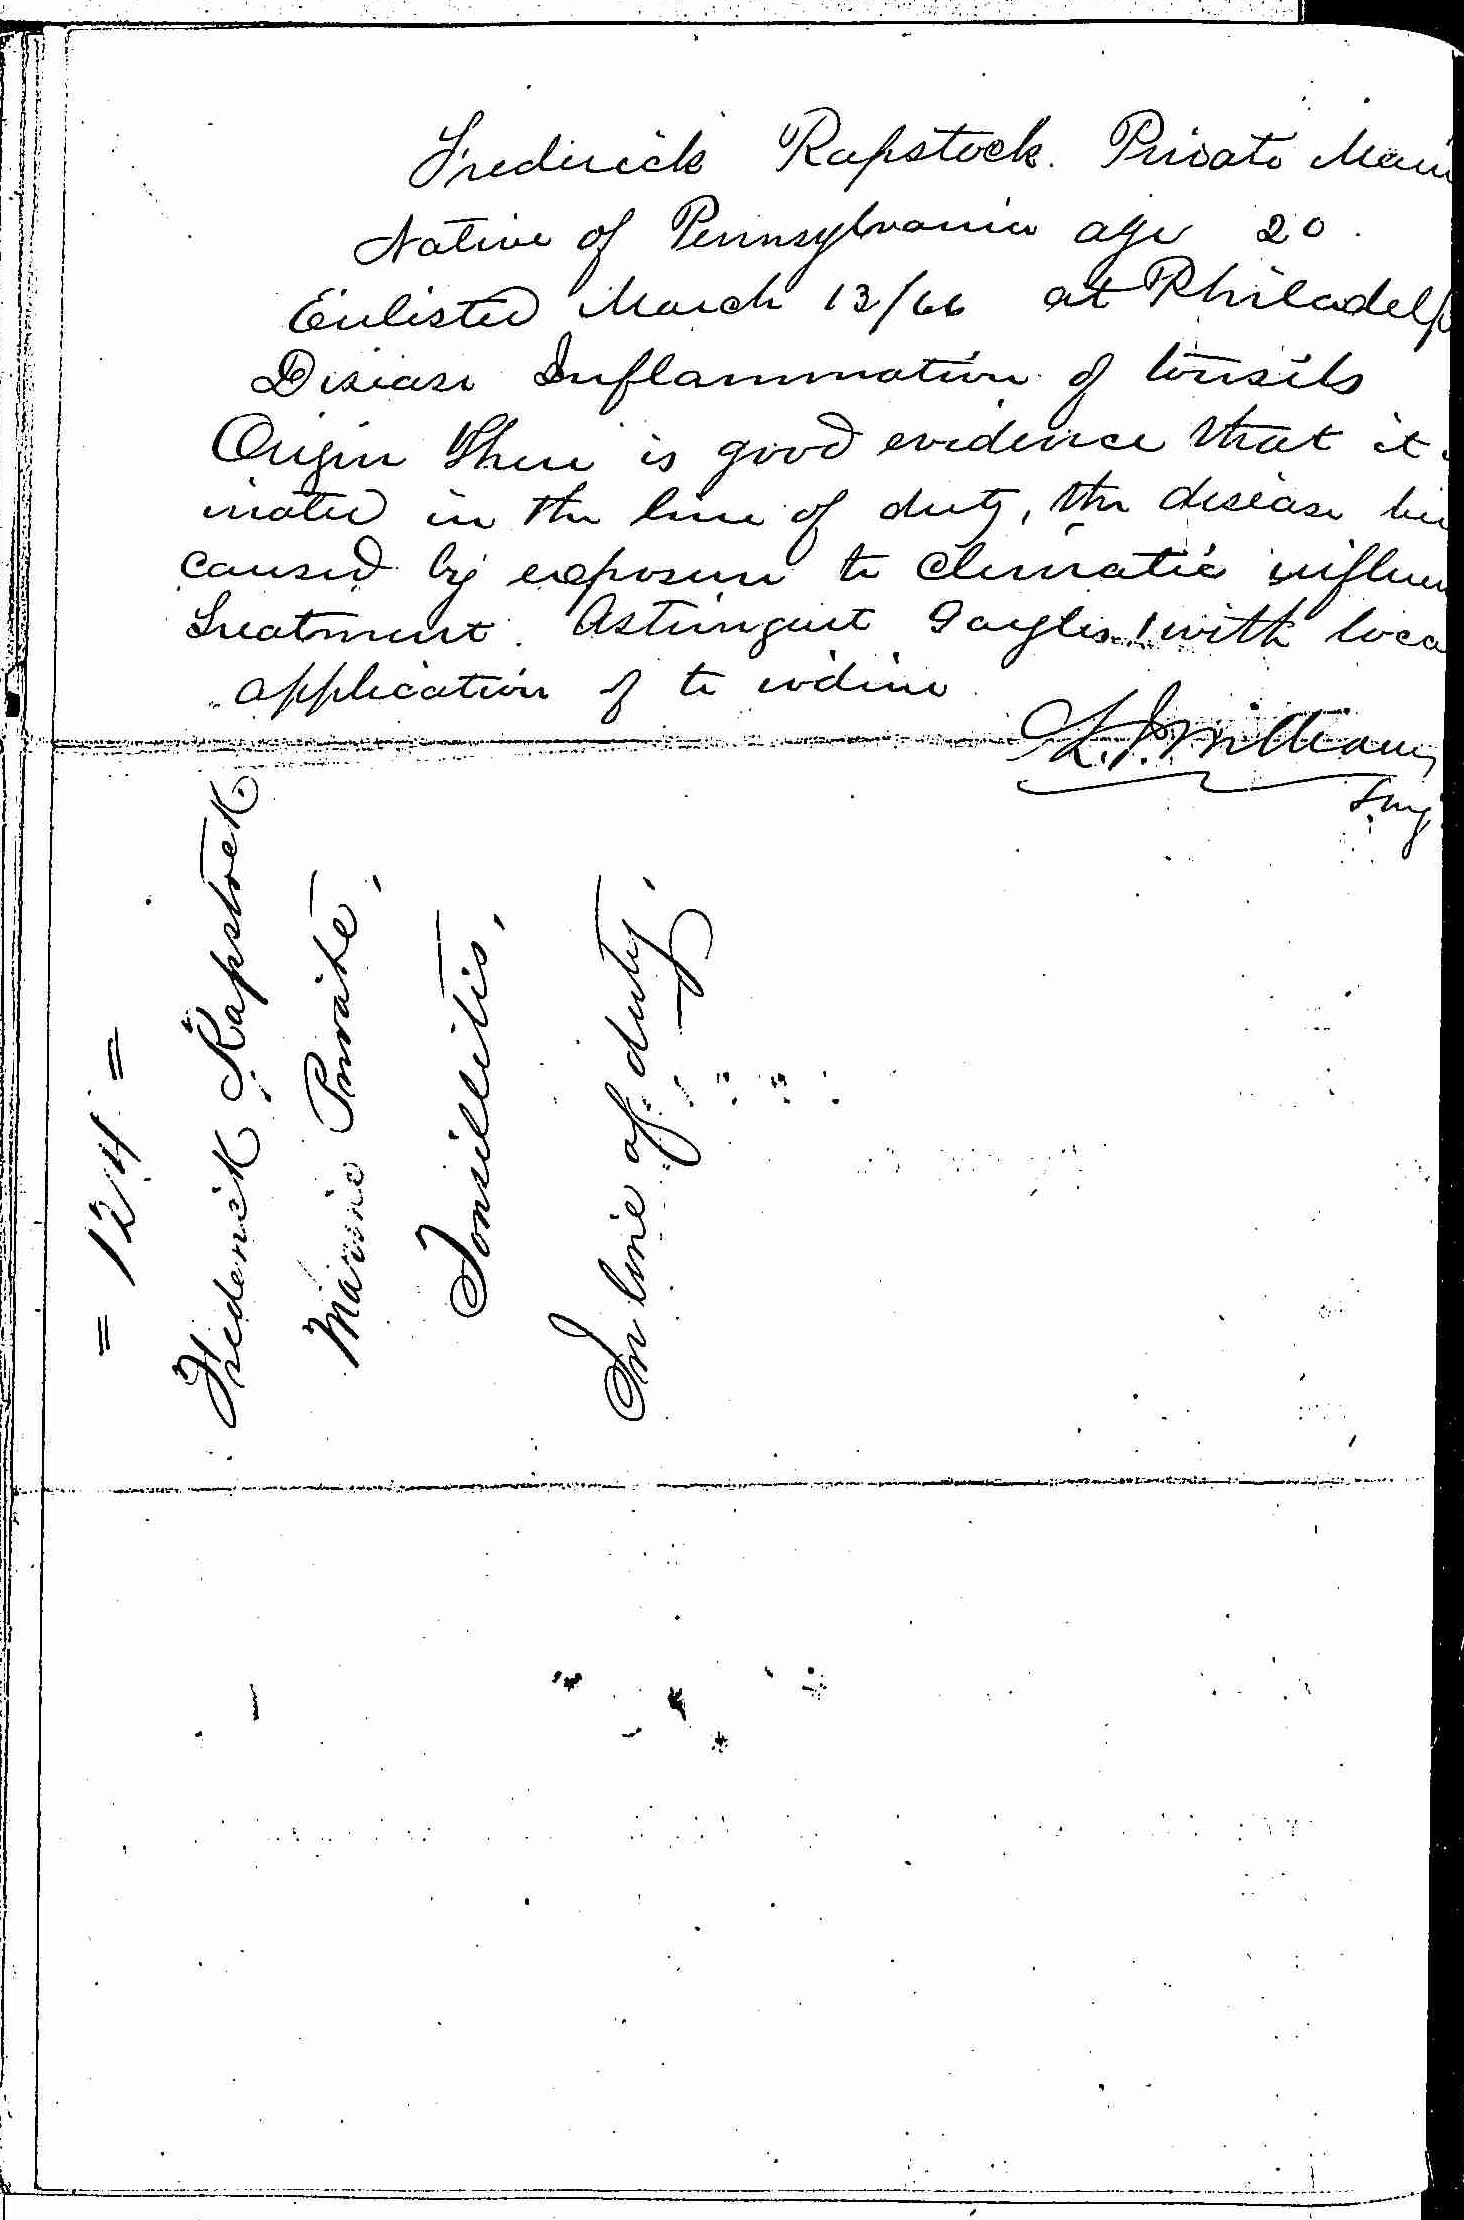 Frederick Rapstock. Private Marin
Native of Pennsylvania age 20.
Enlisted March 13/66 at Philadelp
Disease Inflammation of tonsils
Origin There is good evidence that it
inated in the line of duty, the disease bei
caused by exposure to climatic influen
Treatment. Astringent Gargles with loca
application of tr iodine
Williams
Surg
= 124 =
Frederick Rapstock.
Marine Private,
Tonsillitis,
In line of duty,